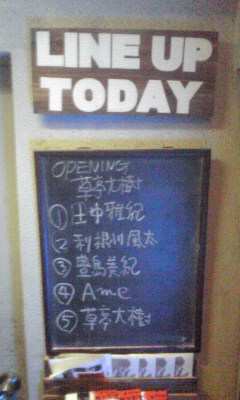 LINE UP
TODAY
OPENING
草亭大樹
① 田中雅紀
② 利根川風太
③ 豊島美紀
④ Ame
⑤ 草亭大樹